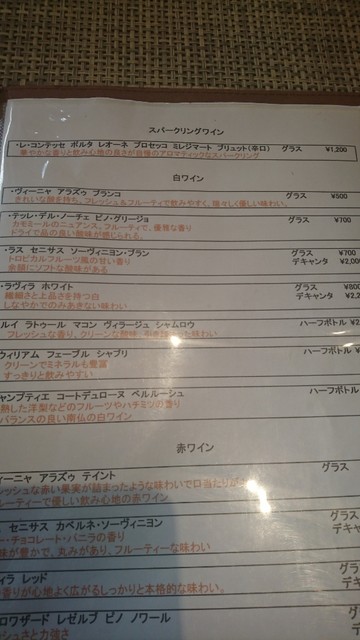 スパークリングワイン
・レ・コンテッセ ポルタ レオーネ プロセッコ ミレジマート ブリュット(辛口) グラス ¥1,200
華やかな香りと飲み心地の良さが自慢のアロマティックなスパークリング
白ワイン
・ヴィーニャ アラズゥ ブランコ グラス ¥500
きれいな酸を持ち、フレッシュ&フルーティで飲みやすく、瑞々しく優しい味わい。
・テッレ・デル・ノーチェ ピノ・グリージョ グラス ¥700
カモミールのニュアンス。フルーティで、優雅な香り
ドライで品の良い酸味が感じられる。
・ラス セニサス ソーヴィニヨン・ブラン グラス ¥700
トロピカルフルーツ風の甘い香り デキャンタ ¥2,00
余韻にソフトな酸味がある
・ラヴィラ ホワイト グラス ¥800
繊細さと上品さを持つ白 デキャンタ ¥2,2
しなやかでのみあきない味わい
ルイ ラトゥール マコン ヴィラージュ シャムロウ ハーフボトル ¥2
フレッシュな香り。クリーンな酸味、味わい
ウィリアム フェーブル シャブリ ハーフボトル ¥
クリーンでミネラルも豊富
すっきりと飲みやすい
ャンプティエ コートデュローヌ ベルルーシュ ハーフボトル
熟した洋梨などのフルーツやハチミツの香り
バランスの良い南仏の白ワイン
赤ワイン
ィーニャ アラズゥ テイント グラス
ッシュな赤い果実が詰まったような味わいで口当たりが
ルーティーで優しい飲み心地の赤ワイン
セニサス カベルネ・ソーヴィニヨン グラス
ー・チョコレート・バニラの香り デキ
味が豊かで、丸みがあり、フルーティーな味わい
ィラ レッド グラ
香りが心地よく広がるしっかりと本格的な味わい。 デキ
ロワザード レゼルブ ピノ ノワール グ
シュさと力強さ デ